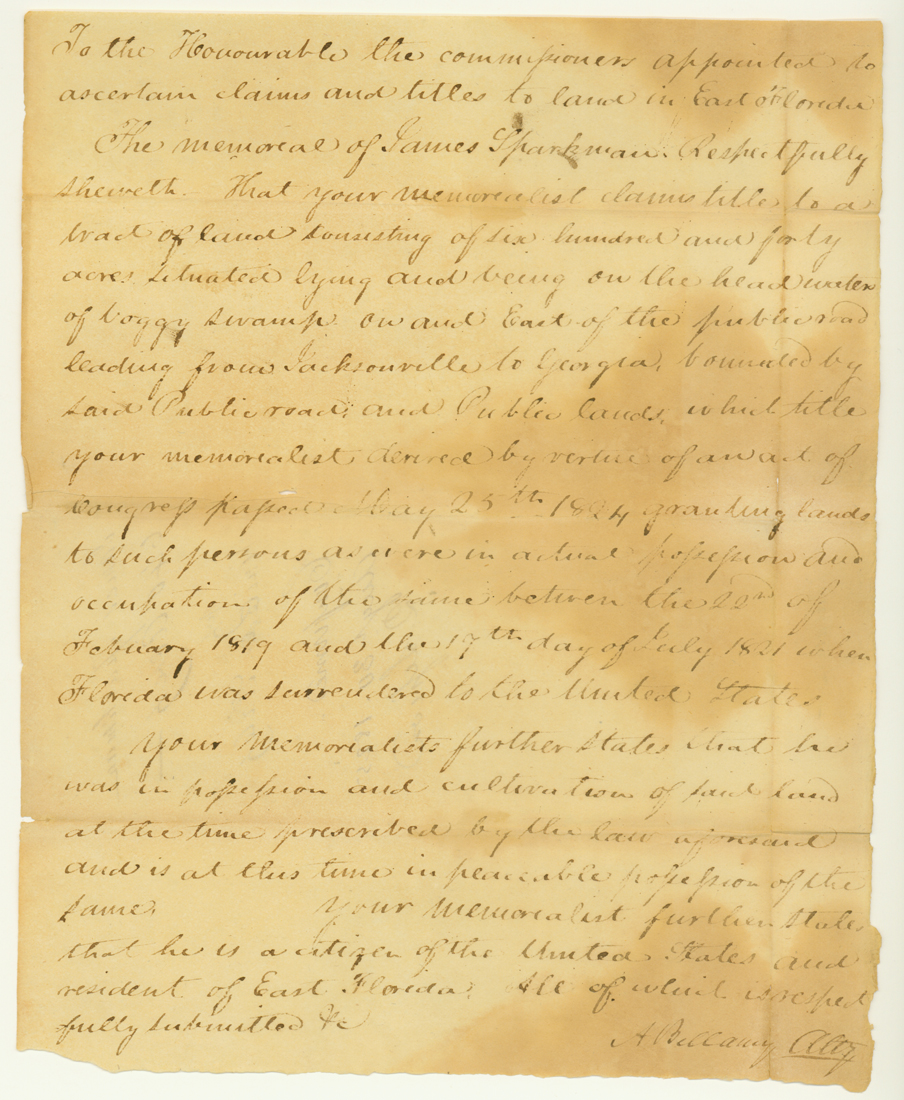 To the Honourable the commissioners appointed to
ascertain claims and titles to land in East Florida
The memorial of James Sparkman. Respectfully
sheweth. That your memorialist claims title to a
tract of land consisting of six hundred and forty
acres situated lying and being on the head waters
of boggy swamp on and East of the public road
leading from Jacksonville to Georgia, bounded by
said Public road, and Public lands, which title
your memorialist derived by vertue of an act of
Congress passed May 25th 1824 granting lands
to such persons as were in actual possession and
occupation of the same between the 22nd of
Febuary 1819 and the 17th day of July 1821 when
Florida was surrendered to the United States
Your memorialists further states that he
was in possession and cultivation of said land
at the time prescribed by the law aforesaid
and is at this time in peaceable possession of the
same. Your memorialist further states
that he is a citizen of the United States and
resident of East Florida. All of which is respect
fully submitted &c
A Bellamy Atty